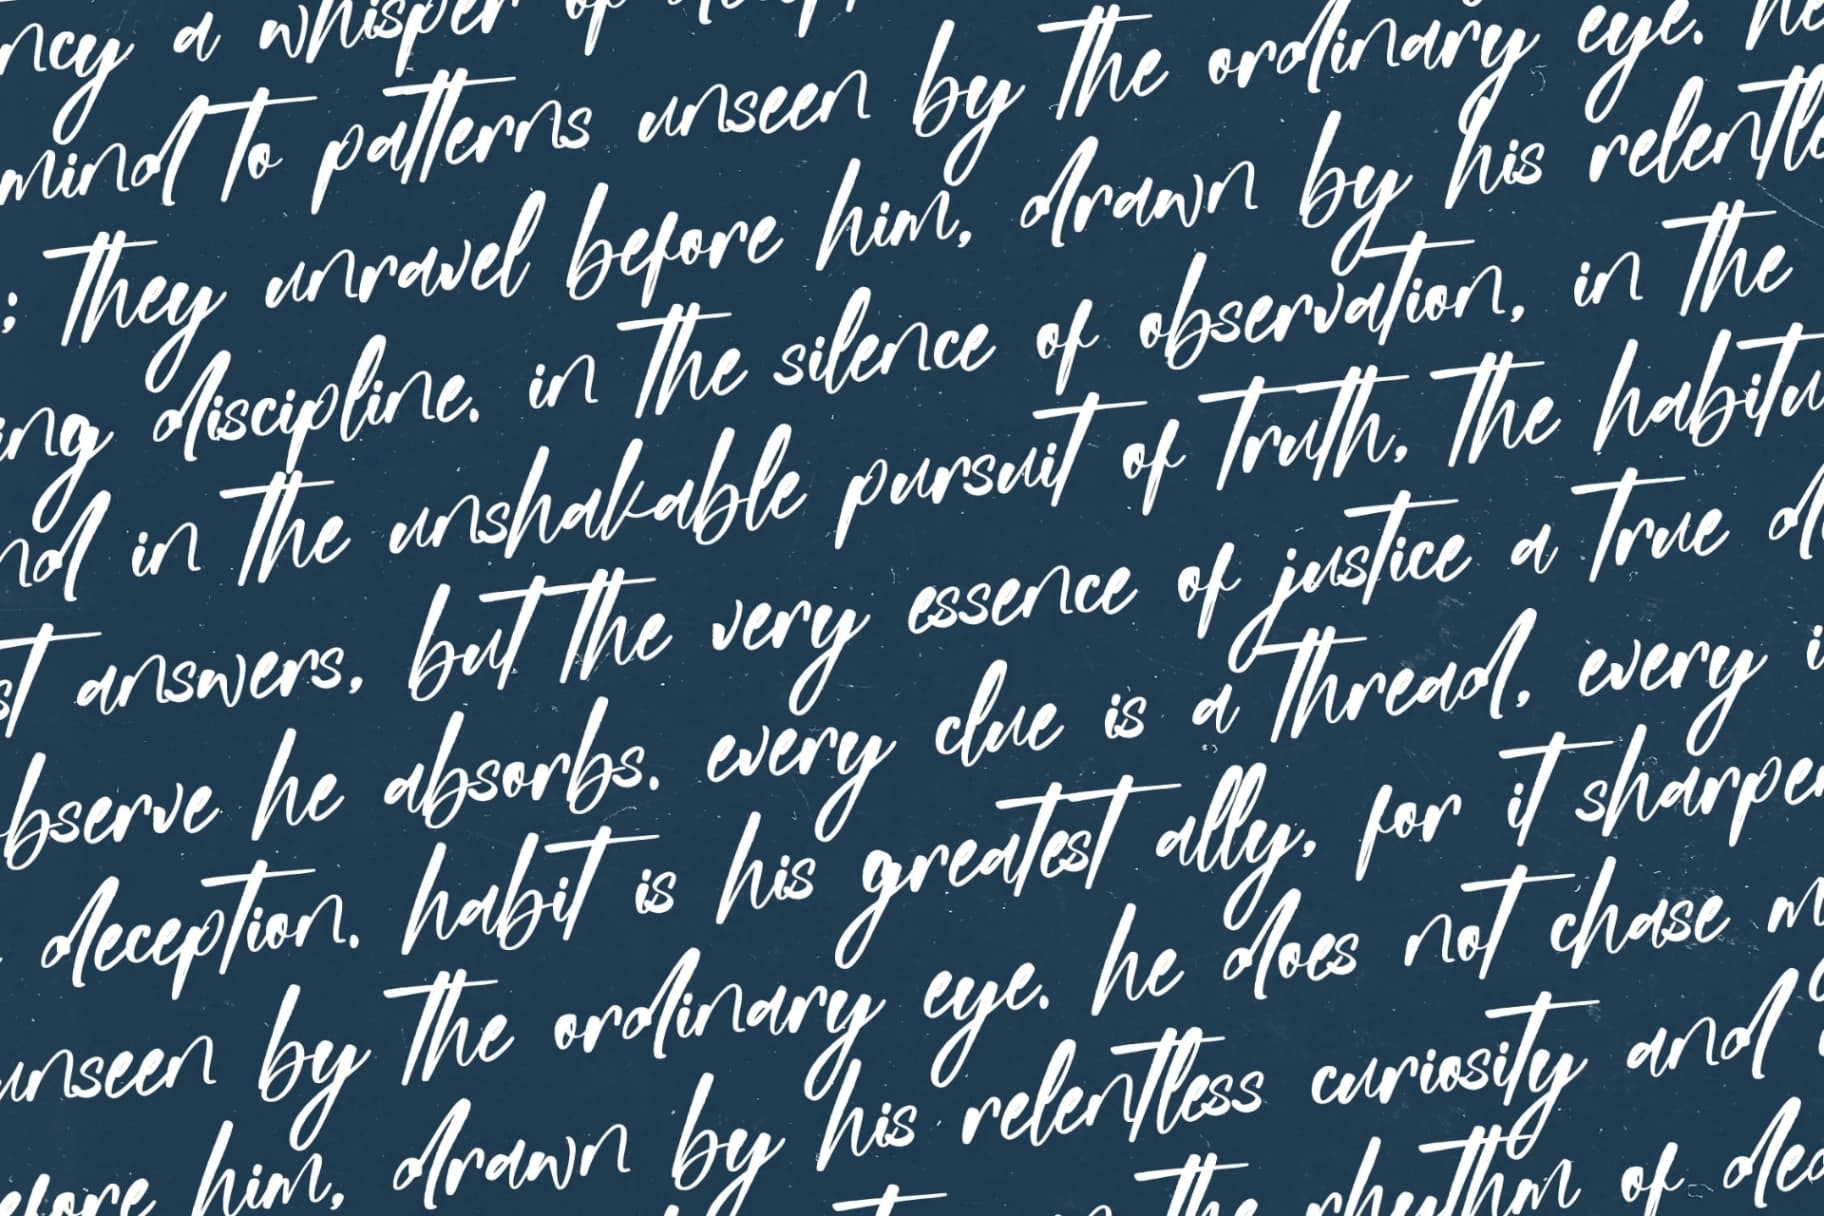 ncy a whisper of
mind to patterns unseen by the ordinary eye. he
; they unravel before him, drawn by his relentle
ing discipline. in the silence of observation, in the
nd in the unshakable pursuit of truth, the habitu
st answers, but the very essence of justice a true d
bserve he absorbs. every clue is a thread, every i
deception. habit is his greatest ally, for it sharpe
unseen by the ordinary eye. he does not chase m
efore him, drawn by his relentless curiosity and
the rhythm of ded